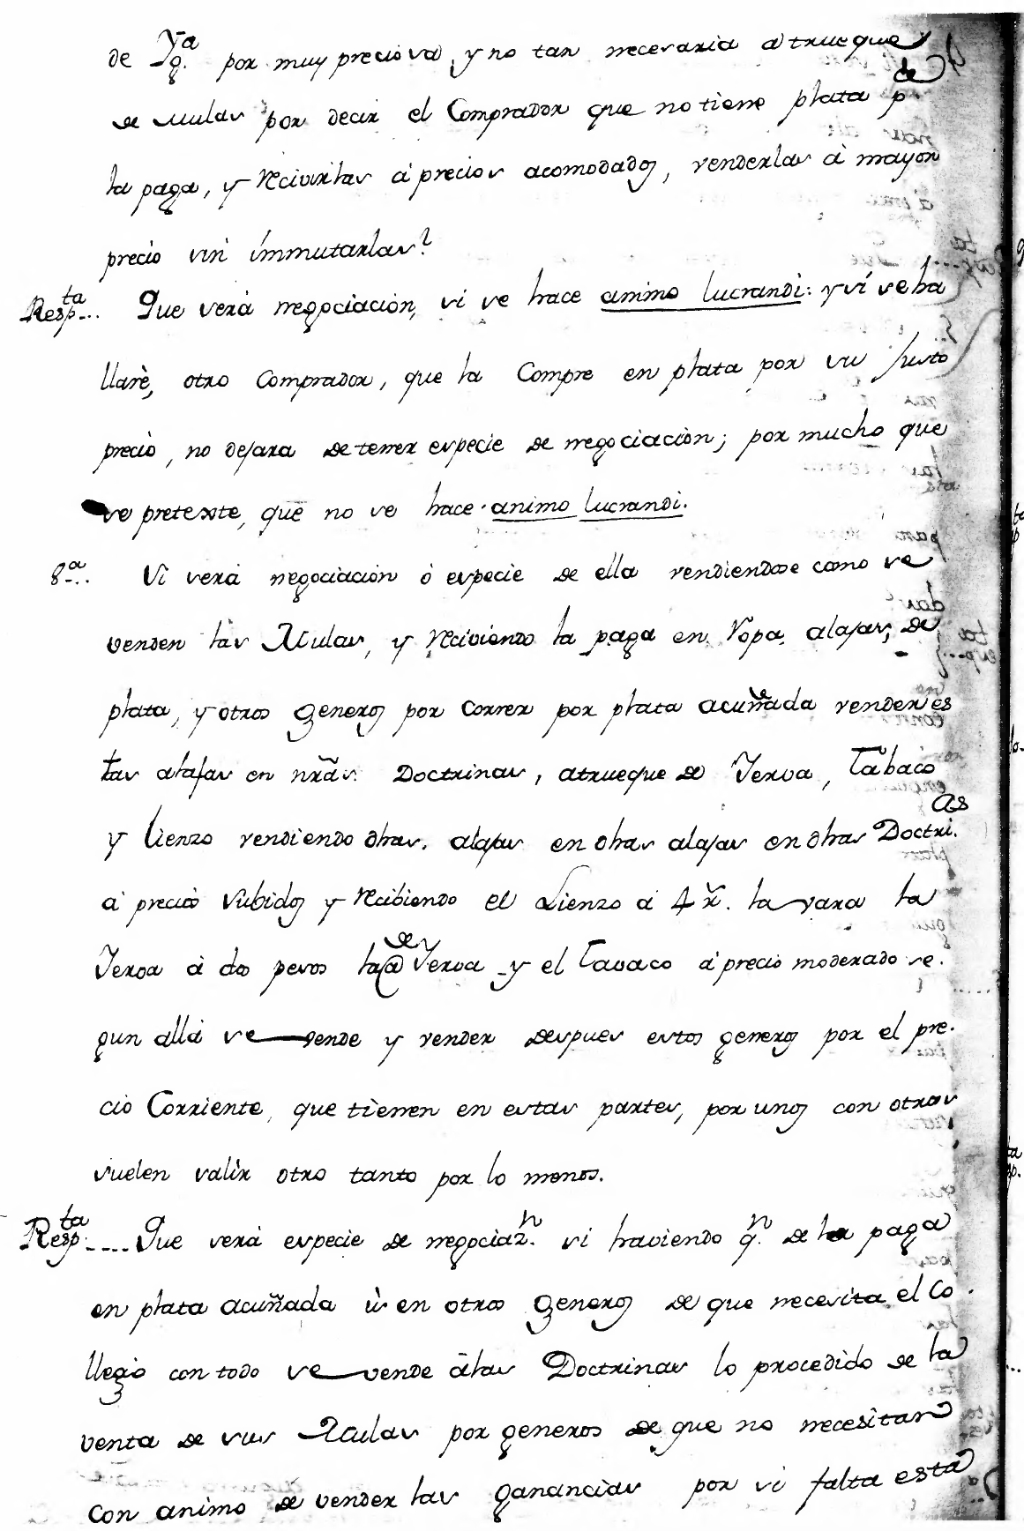 de Yª q.e por muy preciosa, y no tan necesaria atrueque
de Mulas por decir el Comprador que no tiene plata pde
la paga, y recivirlas á precios acomodados, venderlas á mayor
precio sin immutarlas?
Respta... Que será negociacion, si se hace animo lucrandi: y si se ha
llarè, otro Comprador, que la Compre en plata por su justo
precio, no dejara de tener especie de negociacion; por mucho que
se pretexte, que no se hace animo lucrandi.
8ª... Si será negociacion ó especie de ella vendiendose como se
venden las Mulas, y reciviendo la paga en ropa, alajas, de
plata, y otros generos por correr por plata acuñada vender es
tas alajas en nrãs Doctrinas, atrueque de Yerva, Tabaco
y Lienzo vendiendo dhas. alajas en dhas alajas en dhas Doctri.as
á precio subidos y recibiendo el Lienzo á 4 r.s la vara la
Yerva à dos pesos la @ de Yerva y el Tavaco á precio moderado se.
gun allá se vende y vender despues estos generos por el pre.
cio Corriente, que tienen en estas partes, por unos con otros
suelen valir otro tanto por lo menos.
Respta.... Que será especie de negocian. si haviendo q.n de la paga
en plata acuñada ù en otros generos de que necesita el Co.
llegio con todo se vende álas Doctrinas lo procedido de la
venta de sus Mulas por generos de que no necesitan
con animo de vender las ganancias por si falta esta